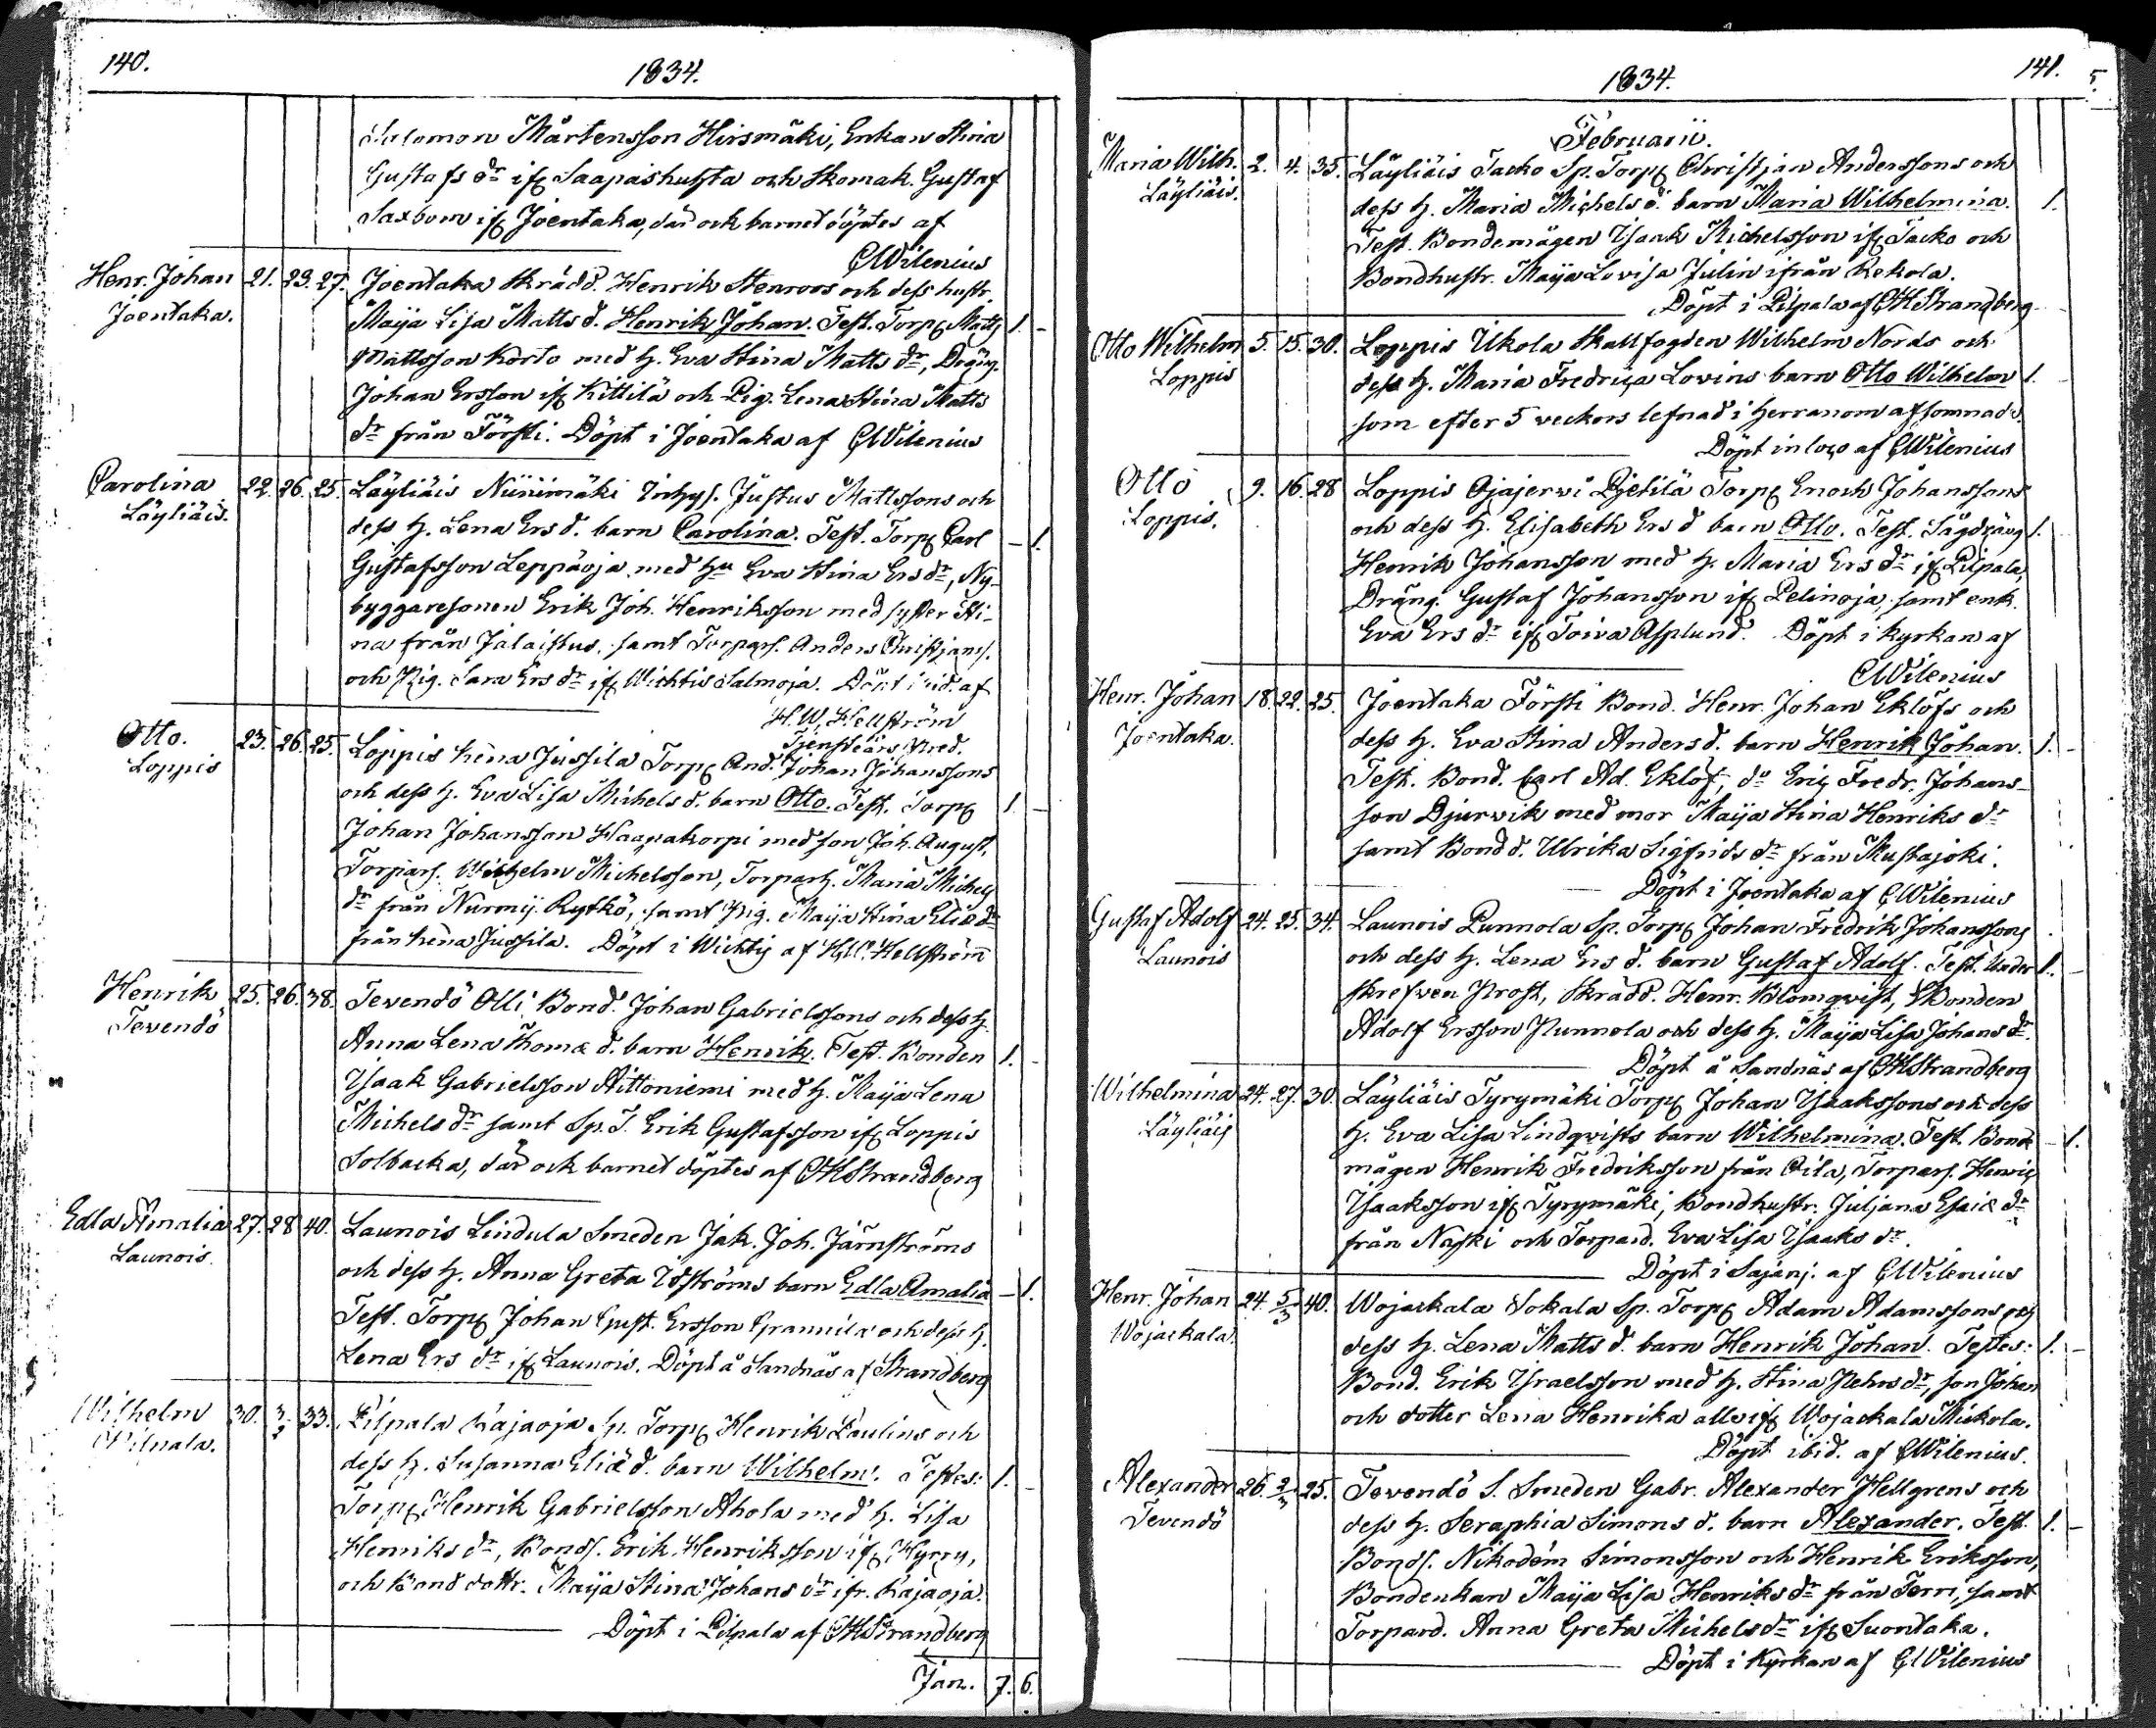 140.
1834.
Salomon Mårtensson Hirsmäki, Enkan Stina
Gustafs dr ifr Saapashuhta och Skomak. Gustaf
Saxbom ifr Joentaka, där ock barnet döptes af
CWilenius
Henr. Johan 21. 23. 27. Joentaka Skrädd. Henrik Stenroos och dess hustr.
Joentaka. Maija Lisa Matts d. Henrik Johan. Test. Torp. Matts 1. -
Mattsson Korto med h. Eva Stina Matts dr, Dräng.
Johan Ersson ifr Kittilä och Pig. Lena Stina Matts
dr från Försti. Döpt i Joentaka af CWilenius
Carolina 22. 26. 25. Läyliäis Niinimäki Inhys. Justus Mattssons och
Läyliäis. dess h. Lena Ers d. barn Carolina. Test. Torp. Carl - 1.
Gustafsson Leppäoja med hu Eva Stina Ers dr, Ny-
byggaresonen Erik Joh. Henriksson med syster Sti-
na från Jalaistus, samt Torpars. Anders Christjans.
och Pig. Sara Ers dr ifr Wichtis Salmoja. Döpt ibid. af
H.W. Hellström
Tjensteårs Pred.
Otto. 23. 26. 25. Loppis Hena Jussila Torp. And. Johan Johanssons
Loppis och dess h. Eva Lisa Michels d. barn Otto. Test. Torp. 1. -
Johan Johansson Haapakorpi med son Joh. August,
Torpars. Wilhelm Michelsson, Torparh. Maria Michels
dr från Nurmij. Rytkö, samt Pig. Maija Stina Eliæ dr
från Hena Jussila. Döpt i Wichtis af H.W. Hellström
Henrik 25. 26. 38. Tevendö Olli Bond. Johan Gabrielssons och dess h.
Tevendö Anna Lena Thomæ d. barn Henrik. Test. Bonden 1. -
Isaak Gabrielsson Aittoniemi med h. Maija Lena
Michels dr samt Sp. T. Erik Gustafsson ifr Loppis
Solbacka, där ock barnet döptes af CHStrandberg
Edla Amalia 27. 28. 40. Launois Lindula Smeden Jak. Joh. Järnströms
Launois. och dess h. Anna Greta Idströms barn Edla Amalia - 1.
Test. Torp. Johan Gust. Ersson Grannila och dess h.
Lena Ers dr ifr Launois. Döpt å Sandnäs af Strandberg
Wilhelm 30. 3/2 33. Pilpala Kajaoja Sp. Torp. Henrik Paulins och
Pilpala. dess h. Susanna Eliæ d. barn Wilhelm. Testes: 1. -
Torp. Henrik Gabrielsson Ahola med h. Lisa
Henriks dr, Bonds. Erik Henriksson ifr Hyrry,
och Bond dottr. Maija Stina Johans dr ifr. Kajaoja.
Döpt i Pilpala af CHStrandberg
Jan. 7. 6.
1834.
141.
Februarii.
Maria Wilh. 2. 4. 35. Läyliäis Jacko Sp. Torp. Christjan Anderssons och
Läyliäis. dess h. Maria Michels d. barn Maria Wilhelmina. 1.
Test. Bondemågen Isaak Michelsson ifr Jacko och
Bondhustr. Maija Lovisa Julin ifrån Rekola.
Döpt i Pilpala af CHStrandberg
Otto Wilhelm 5. 15. 30. Loppis Ukola Skallfogden Wilhelm Nords och
Loppis dess h. Maria Fredrica Lovins barn Otto Wilhelm 1. -
som efter 5 veckors lefnad i Herranom afsomnade.
Döpt in loco af CWilenius
Otto 9. 16. 28 Loppis Ojajerwi Pjetilä Torp. Enoch Johanssons
Loppis. och dess h. Elisabeth Ers d. barn Otto. Test. Sågdräng 1.
Henrik Johansson med h. Maria Ers dr ifr Pilpala,
Dräng. Gustaf Johansson ifr Pelinoja, samt enk.
Eva Ers dr ifr Toiva Asplund. Döpt i kyrkan af
CWilenius
Henr. Johan 18. 22. 25. Joentaka Försti Bond. Henr. Johan Eklöfs och
Joentaka. dess h. Eva Stina Anders d. barn Henrik Johan. 1. -
Test. Bond. Carl Ad. Eklöf, do Eric Fredr. Johans-
son Djurvik med mor Maija Stina Henriks dr
samt Bond d. Ulrika Sigfrids dr från Mustajoki.
Döpt i Joentaka af CWilenius
Gustaf Adolf 24. 25. 34. Launois Punnola Sp. Torp. Johan Fredrik Johanssons
Launois och dess h. Lena Ers d. barn Gustaf Adolf. Test. Under 1. -
skrefven Prost, Skrädd. Henr. Blomqvist, Bonden
Adolf Ersson Punnola och dess h. Maija Lisa Johans dr.
Döpt å Sandnäs af CHStrandberg
Wilhelmina 24. 27. 30. Läyliäis Tyrymäki Torp. Johan Isaakssons och dess
Läyliäis h. Eva Lisa Lindqvists barn Wilhelmina. Test. Bond - 1.
mågen Henrik Fredriksson från Oila, Torpars. Henric
Isaaksson ifr Tyrymäki, Bondhustr. Juljana Esaiæ dr
från Naski och Torpard. Eva Lisa Isaaks dr.
Döpt i Sajanj. af CWilenius
Henr. Johan 24. 5/3 40. Wojackala Sokala Sp. Torp. Adam Adamssons och
Wojackala. dess h. Lena Matts d. barn Henrik Johan. Testes: 1. -
Bond. Erik Israelsson med h. Stina Pehrs dr, son Johan
och dotter Lena Henrika alle ifr Wojackala Mickola.
Döpt ibid. af CWilenius.
Alexander 26. 2/3 25. Tevendö S. Smeden Gabr. Alexander Hellgrens och
Tevendö dess h. Seraphia Simons d. barn Alexander. Test. 1. -
Bonds. Nikodem Simonsson och Henrik Eriksson,
Bondenkan Maija Lisa Henriks dr från Terri, samt
Torpard. Anna Greta Michels dr ifr Suontaka.
Döpt i Kyrkan af CWilenius